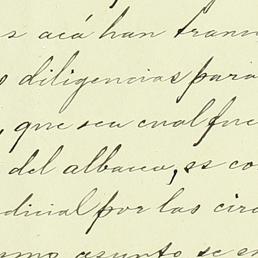 s acá han trans
diligencias para
, que sea cual fue
del albacea, es co
dicial por las circ
smo asunto se en